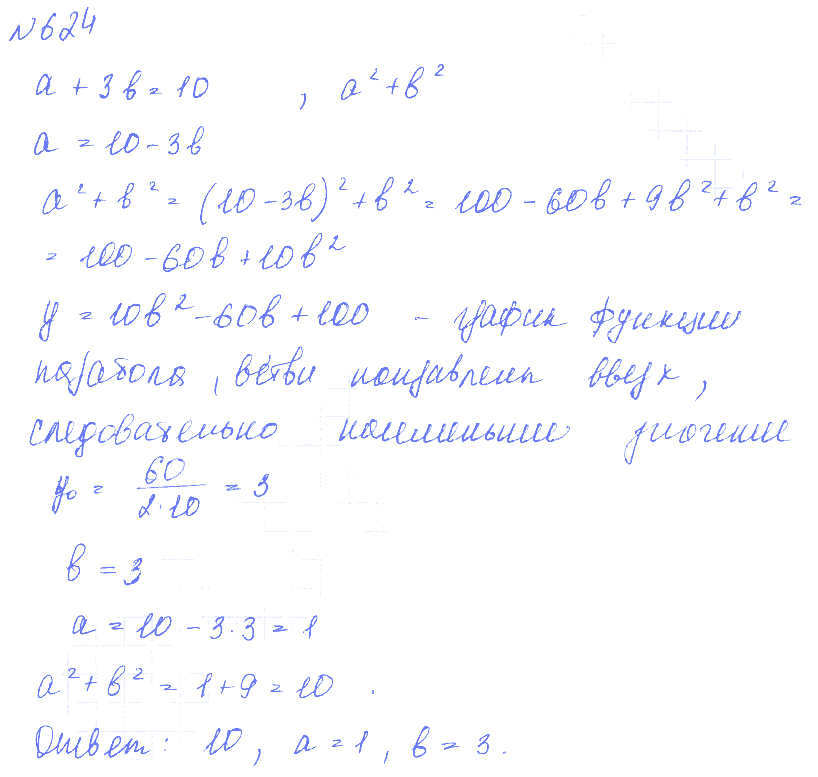 №624
a + 3в = 10 , a² + в²
a = 10 - 3в
a² + в² = (10 - 3в)² + в² = 100 - 60в + 9в² + в² =
= 100 - 60в + 10в²
y = 10в² - 60в + 100 - график функции
парабола, ветви направлены вверх,
следовательно наименьшее значение
y₀ = 60/(2·10) = 3
в = 3
a = 10 - 3·3 = 1
a² + в² = 1 + 9 = 10 .
Ответ: 10, a = 1, в = 3.